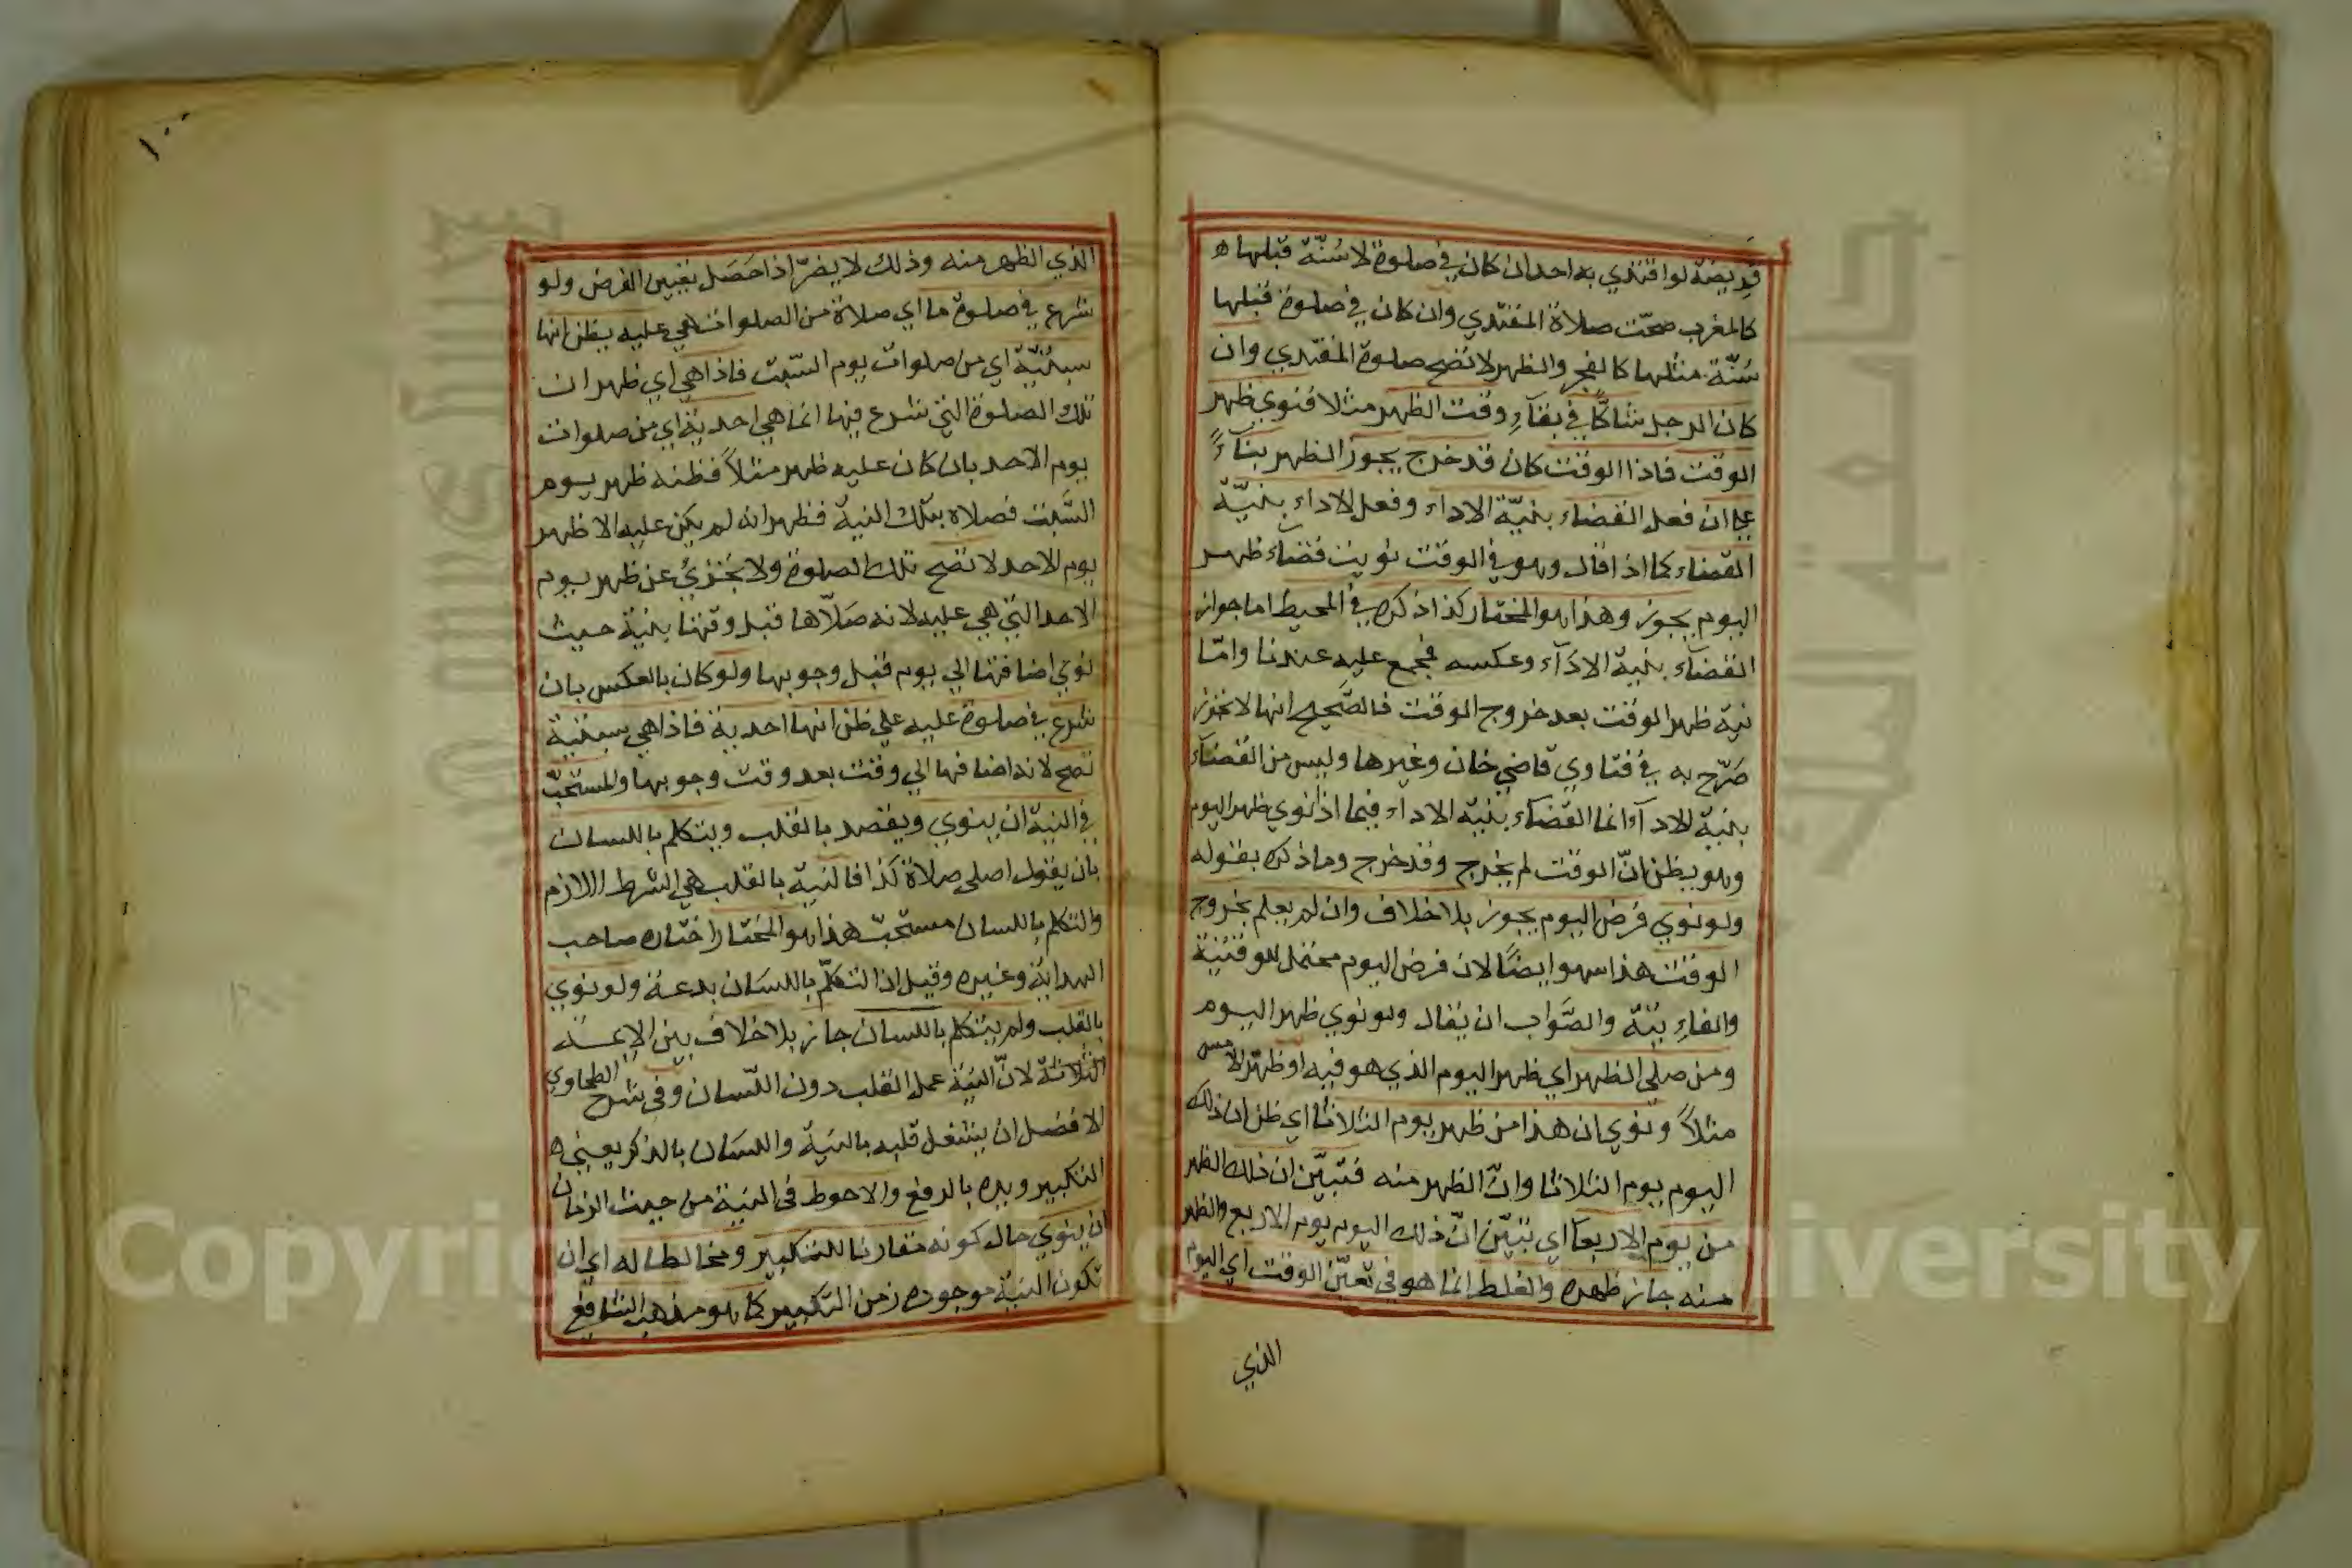 فريضة لو اقتدي به احد ان كان في صلوة لا سُنّة قبلها
كالمغرب صحّت صلاة المقتدي وان كان في صلوة قبلها
سُنّة مثلها كالفجر والظهر لا تصح صلوة المقتدي وان
كان الرجل شاكّا في بقآءِ وقت الظهر مثلا فنوي ظهر
الوقت فاذا الوقت كان قد خرج يجوز الظهر بنآءً
علي ان فعل القضاء بنيّة الاداء وفعل الاداء بنيّة
القضاء كما اذا قال وهو في الوقت نويت قضآء ظهر
اليوم يجوز وهذا هو المختار كذا ذكره في المحيط اما جواز
القضآء بنية الادآء وعكسه فمجمع عليه عندنا وامّا
نية ظهر الوقت بعد خروج الوقت فالصَّحيح انها لا تجوز
صَرّح به في فتاوي قاضي خان وغيرها وليس من القضآء
بنية الادآء انما القضآء بنية الادآء فيما اذا نوي ظهر اليوم
وهو يظن انّ الوقت لم يخرج وقد خرج وما ذكره بقوله
ولو نوي فرض اليوم يجوز بلا خلاف وان لم يعلم بخروج
الوقت هذا سهو ايضًا لان فرض اليوم محتمل للوقتية
والفاءِ يتة والصَّواب ان يُقال ولو نوي ظهر اليوم
ومن صلي الظهر اي ظهر اليوم الذي هو فيه او ظهر الامس
مثلاً ونوي ان هذا من ظهر يوم الثلاثا اي ظن ان ذلك
اليوم يوم الثلاثا وانّ الظهر منه فتبيّن ان ذلك الظهر
من يوم الاربعآ اي تبيّن انّ ذلك اليوم يوم الاربع والظهر
منه جاز ظهره والغلط انما هو في تعيّن الوقت اي اليوم
الذي
١٠٠
الذي الظهر منه وذلك لا يضرّ اذا حَصَل تعيين الفرض ولو
شرع في صلوة ما اي صلاة من الصلوات هي عليه يظن انها
سبتيّة اي من صلوات يوم السّبت فاذا هي اي ظهر ان
تلك الصلوة التي شرع فيها انما هي احدية اي من صلوات
يوم الاحد بان كان عليه ظهر مثلاً فظنه ظهر يوم
السَّبت فصلاه بتلك النية فظهر انه لم يكن عليه الا ظهر
يوم الاحد لا تصح تلك الصلوة ولا يجزئ عن ظهر يوم
الاحد التي هي عليه لانه صَلّاها قبل وقتها بنية حيث
نوي اضافتها الي يوم قبل وجوبها ولو كان بالعكس بان
شرع في صلوة عليه علي ظن انها احدية فاذا هي سبتية
تصح لانه اضافها الي وقت بعد وقت وجوبها والمستحبّ
في النية ان ينوي ويقصد بالقلب ويتكلم باللسان
بان يقول اصلي صلاة كذا فالنية بالقلب هي الشرط اللازم
والتكلم باللسان مستحبّ هذا هو المختار اختاره صاحب
الهداية وغيره وقيل ان التكلّم باللسَان بدعة ولو نوي
بالقلب ولم يتكلم باللسان جاز بلا خلاف بين الائمة
الثلاثة لانّ النيّة عمل القلب دون اللّسان وفي شرح الطحاوي
الافضل ان يشتغل قلبه بالنيّة واللسَان بالذكر يعني
التكبير ويده بالرفع والاحوط في النيّة من حيث الزمان
ان ينوي حال كونه مقارنا للتكبير ومخالطا له اي ان
تكون النيّة موجوده زمن التكبير كما هو مذهب الشافعي